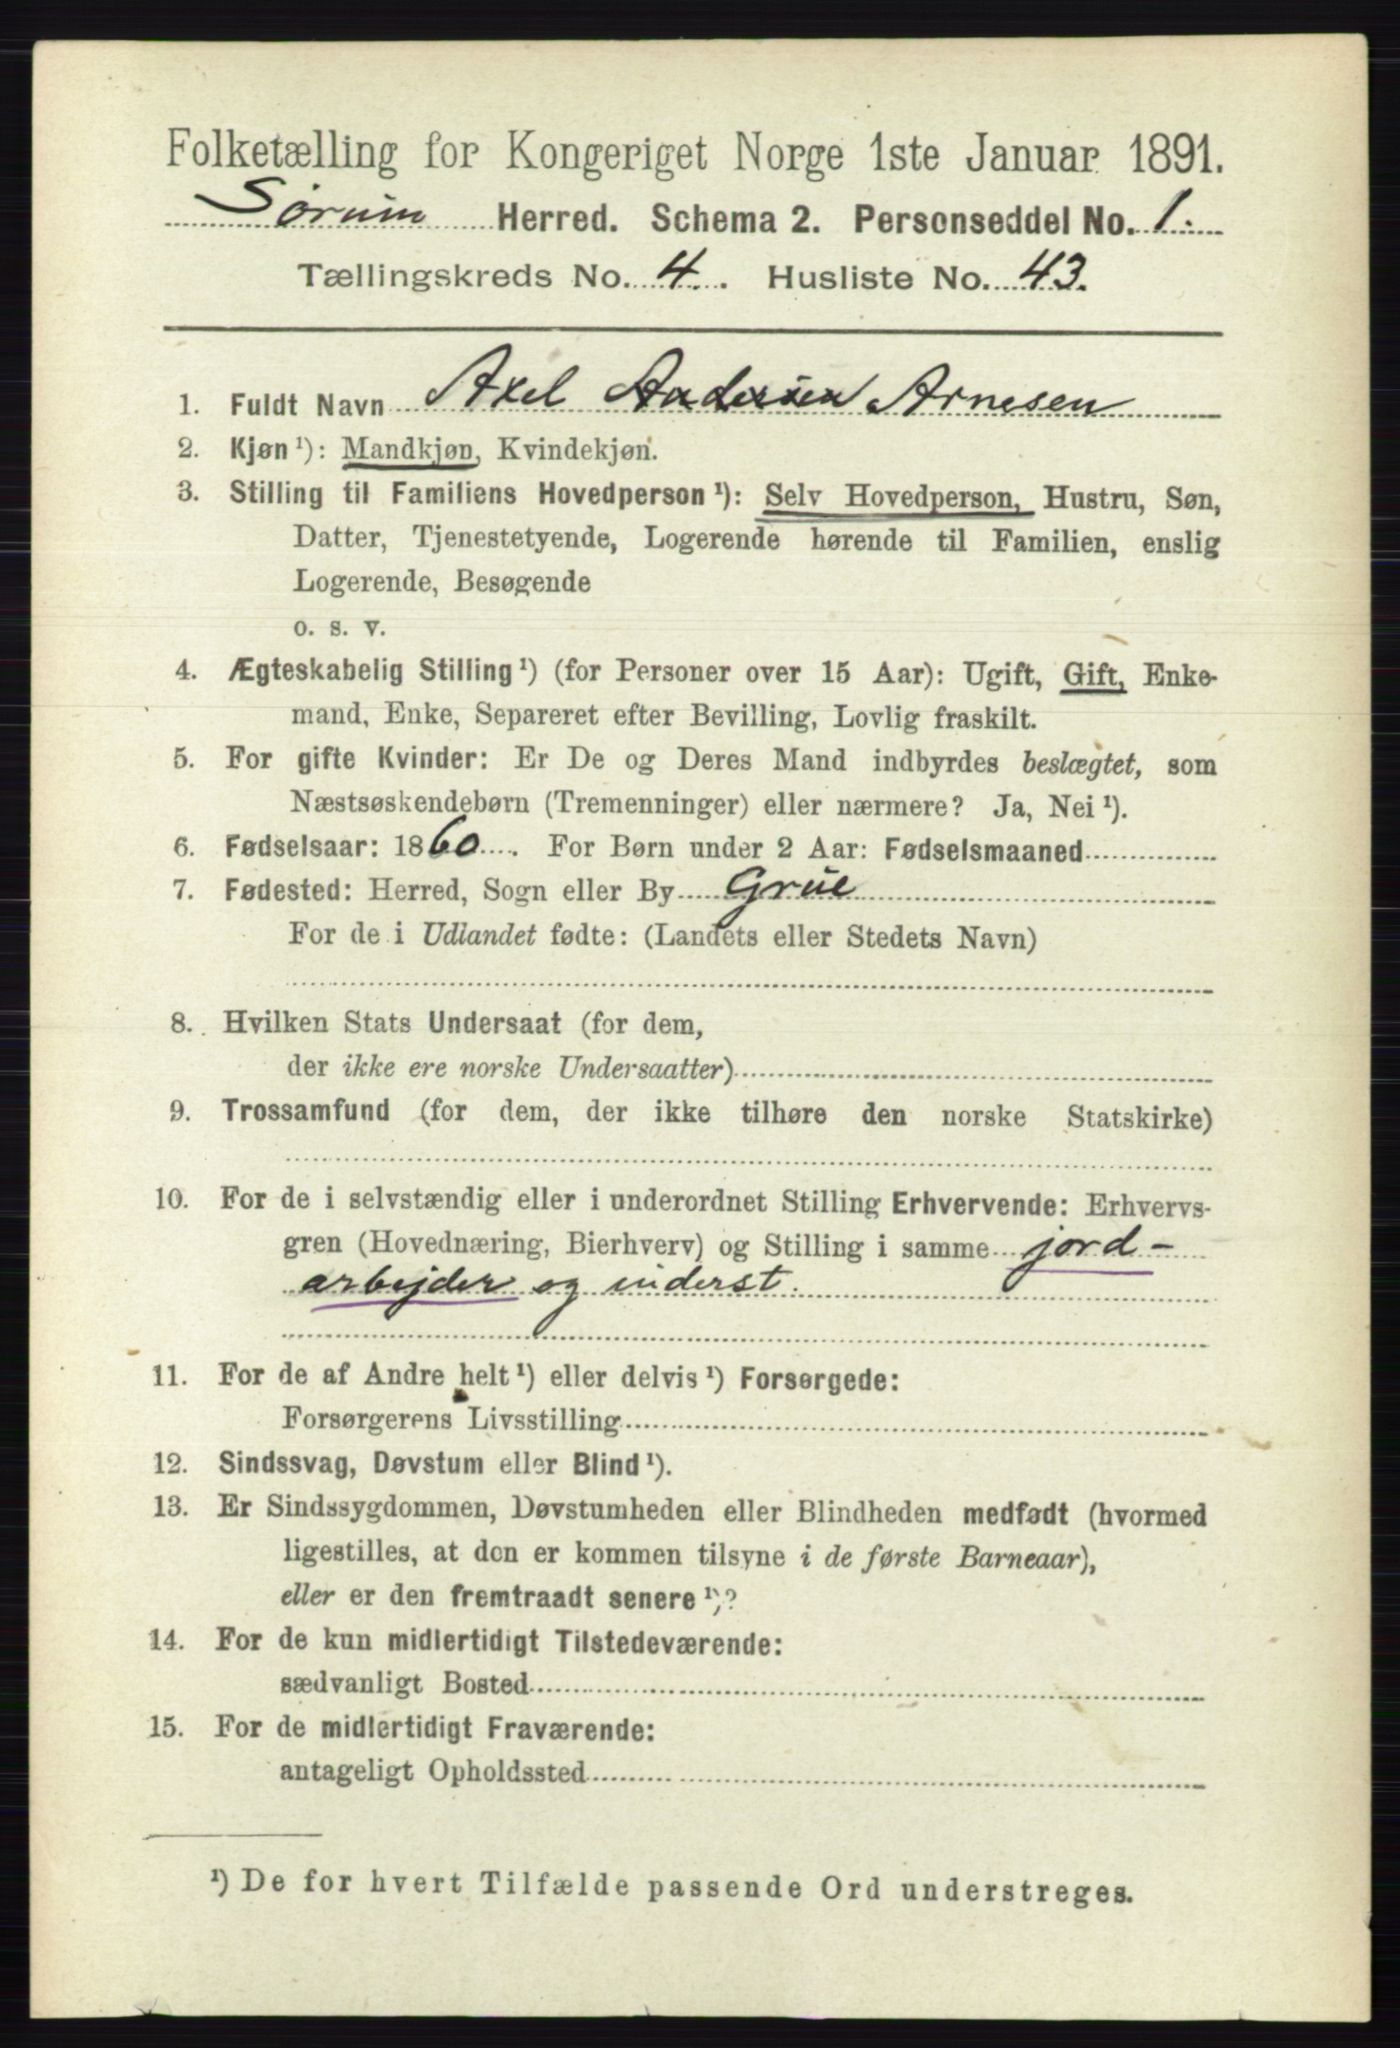 Folketælling for Kongeriget Norge 1ste Januar 1891.
Sørum Herred. Schema 2. Personseddel No. 1.
Tællingskreds No. 4. Husliste No. 43.
1. Fuldt Navn Axel Andersen Arnesen
2. Kjøn¹): Mandkjøn, Kvindekjøn.
3. Stilling til Familiens Hovedperson¹): Selv Hovedperson, Hustru, Søn,
Datter, Tjenestetyende, Logerende hørende til Familien, enslig
Logerende, Besøgende
o. s. v.
4. Ægteskabelig Stilling¹) (for Personer over 15 Aar): Ugift, Gift, Enke-
mand, Enke, Separeret efter Bevilling, Lovlig fraskilt.
5. For gifte Kvinder: Er De og Deres Mand indbyrdes beslægtet, som
Næstsøskendebørn (Tremenninger) eller nærmere? Ja, Nei¹).
6. Fødselsaar: 1860. For Børn under 2 Aar: Fødselsmaaned
7. Fødested: Herred, Sogn eller By Grue
For de i Udlandet fødte: (Landets eller Stedets Navn)
8. Hvilken Stats Undersaat (for dem,
der ikke ere norske Undersaatter)
9. Trossamfund (for dem, der ikke tilhøre den norske Statskirke)
10. For de i selvstændig eller i underordnet Stilling Erhvervende: Erhvervs-
gren (Hovednæring, Bierhverv) og Stilling i samme jord-
arbejder og inderst.
11. For de af Andre helt¹) eller delvis¹) Forsørgede:
Forsørgerens Livsstilling
12. Sindssvag, Døvstum eller Blind¹).
13. Er Sindssygdommen, Døvstumheden eller Blindheden medfødt (hvormed
ligestilles, at den er kommen tilsyne i de første Barneaar),
eller er den fremtraadt senere¹)?
14. For de kun midlertidigt Tilstedeværende:
sædvanligt Bosted
15. For de midlertidigt Fraværende:
antageligt Opholdssted
¹) De for hvert Tilfælde passende Ord understreges.